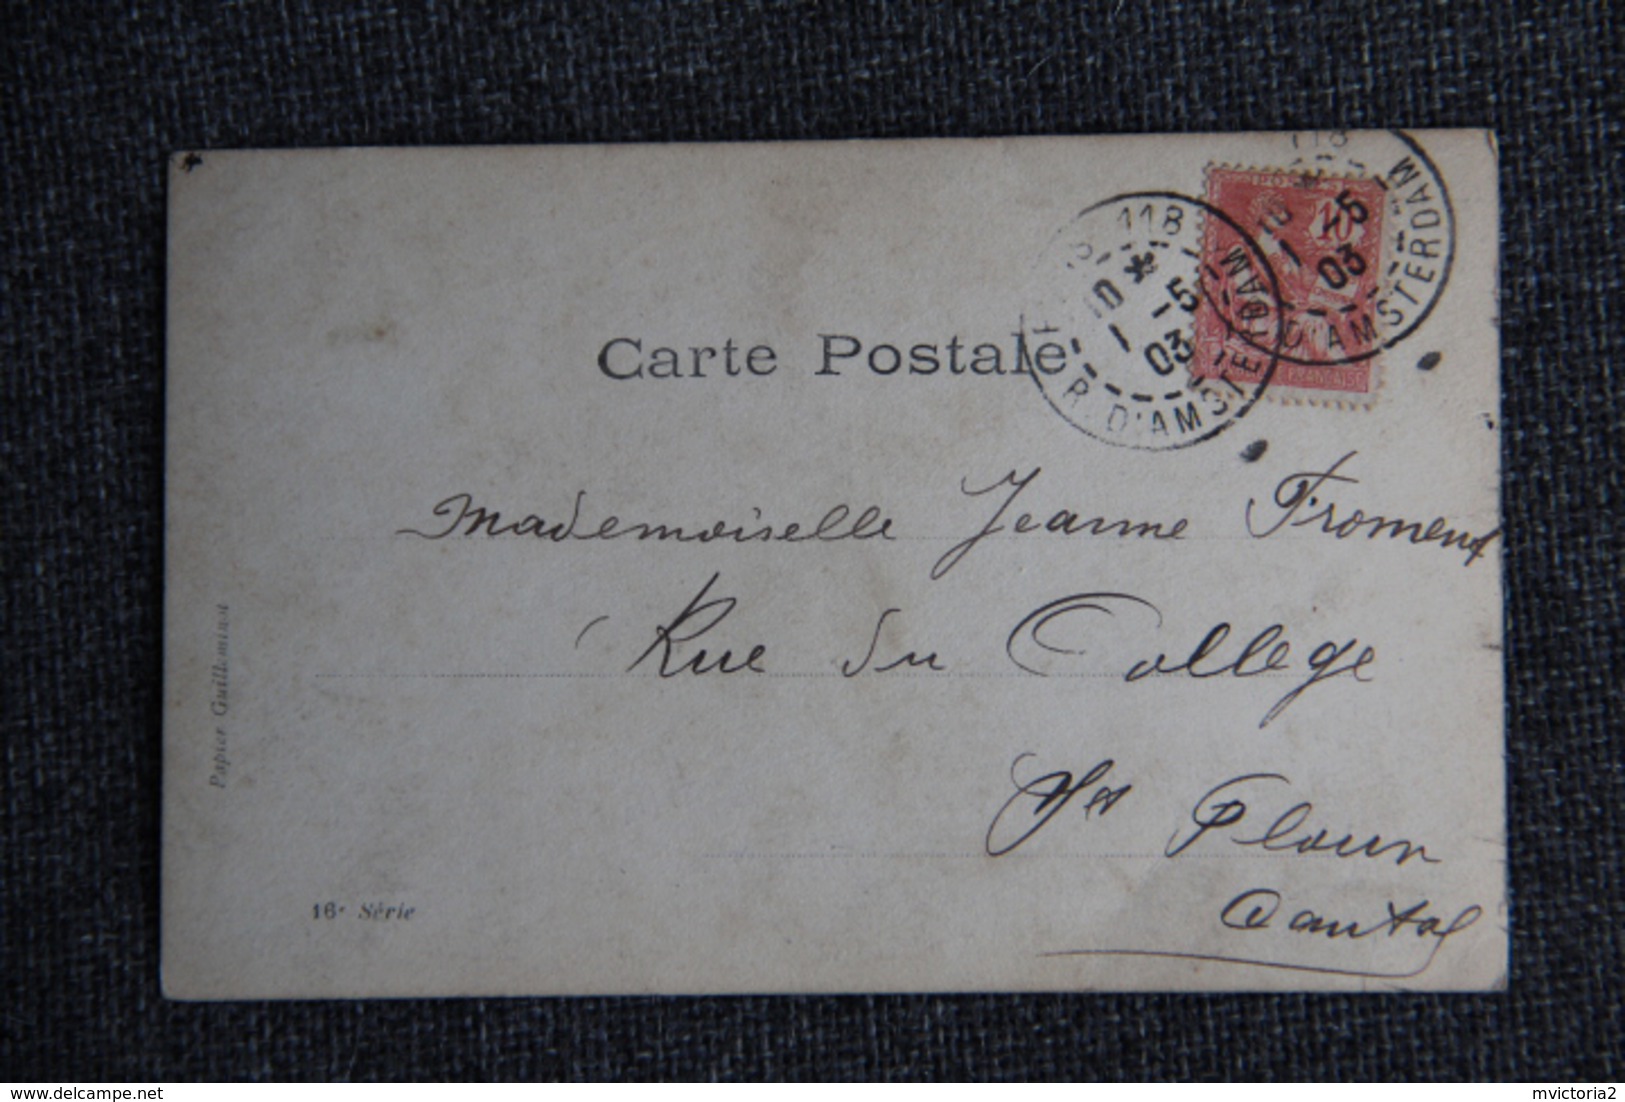 Carte Postale
118
PARIS 118 R. D'AMSTERDAM
10 * 1-5
1 03
D'AMSTERDAM
10 * 1-5
03
10
Mademoiselle Jeanne Froment
Rue du College
St Flour
Cantal
Papier Guilleminot
16e Série
delcampe.net
mvictoria2